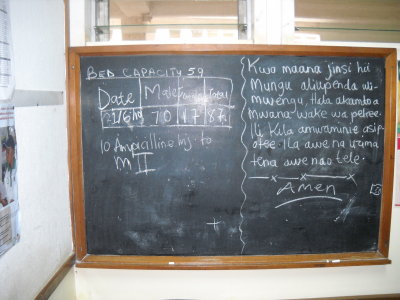 BED CAPACITY 59
Date Male Female Total
21/6 70 17 87
10 Ampicilline inj. to
M II
Kwo maana jinsi hii
Mungu aliupenda u-
mwengu, hata akamtoa
Mwana-wake wa pekee.
Ili Kila amwaminie asip-
otee. Ila awe na uzima
tena awe nao tele.
Amen